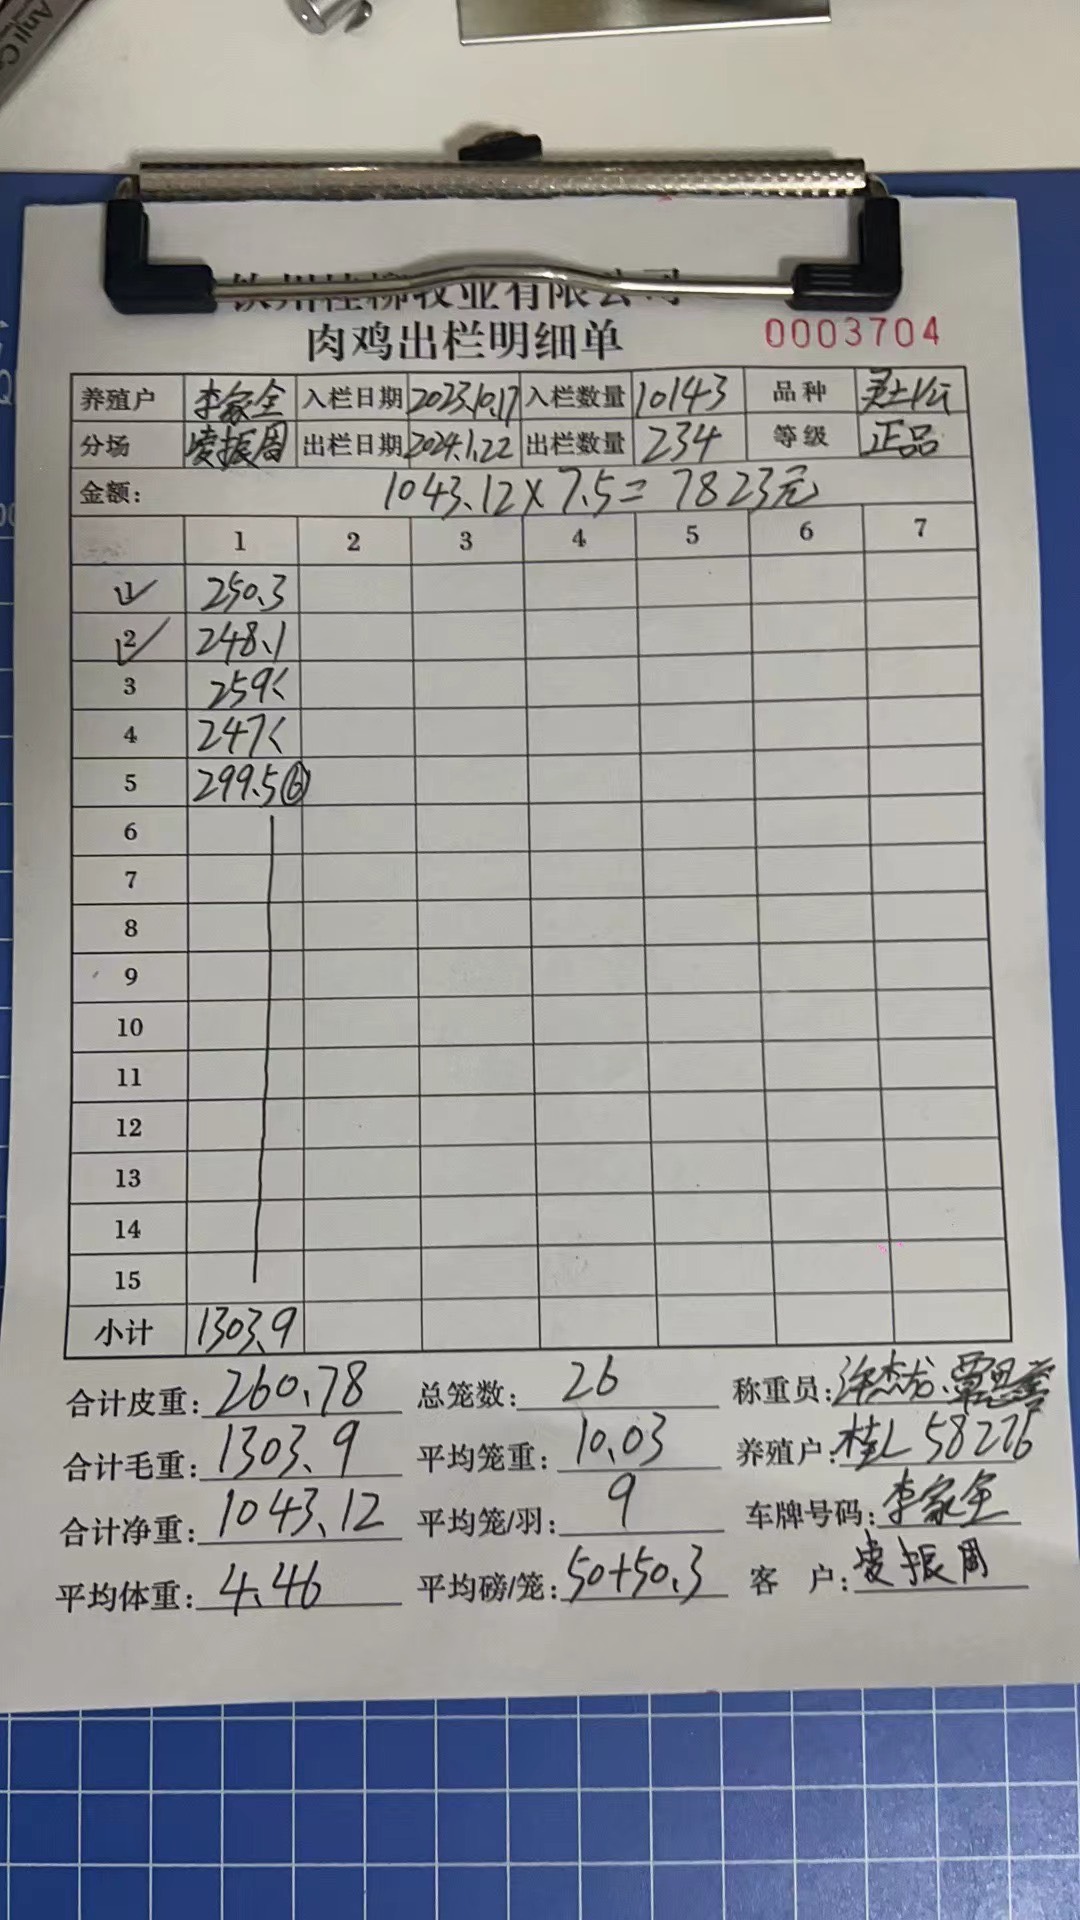 钦州桂柳牧业有限公司
肉鸡出栏明细单 0003704
养殖户 李家全 入栏日期 2023.10.17 入栏数量 10143 品种 灵土公
分场 凌振周 出栏日期 2024.1.22 出栏数量 234 等级 正品
金额: 1043.12×7.5=7823元
1 2 3 4 5 6 7
1 250.3
2 248.1
3 259
4 247
5 299.5⑥
6
7
8
9
10
11
12
13
14
15
小计 1303.9
合计皮重: 260.78 总笼数: 26 称重员: 许杰龙、
合计毛重: 1303.9 平均笼重: 10.03 养殖户: 桂L 58276
合计净重: 1043.12 平均笼/羽: 9 车牌号码: 李家全
平均体重: 4.46 平均磅/笼: 50+50.3 客 户: 凌振周